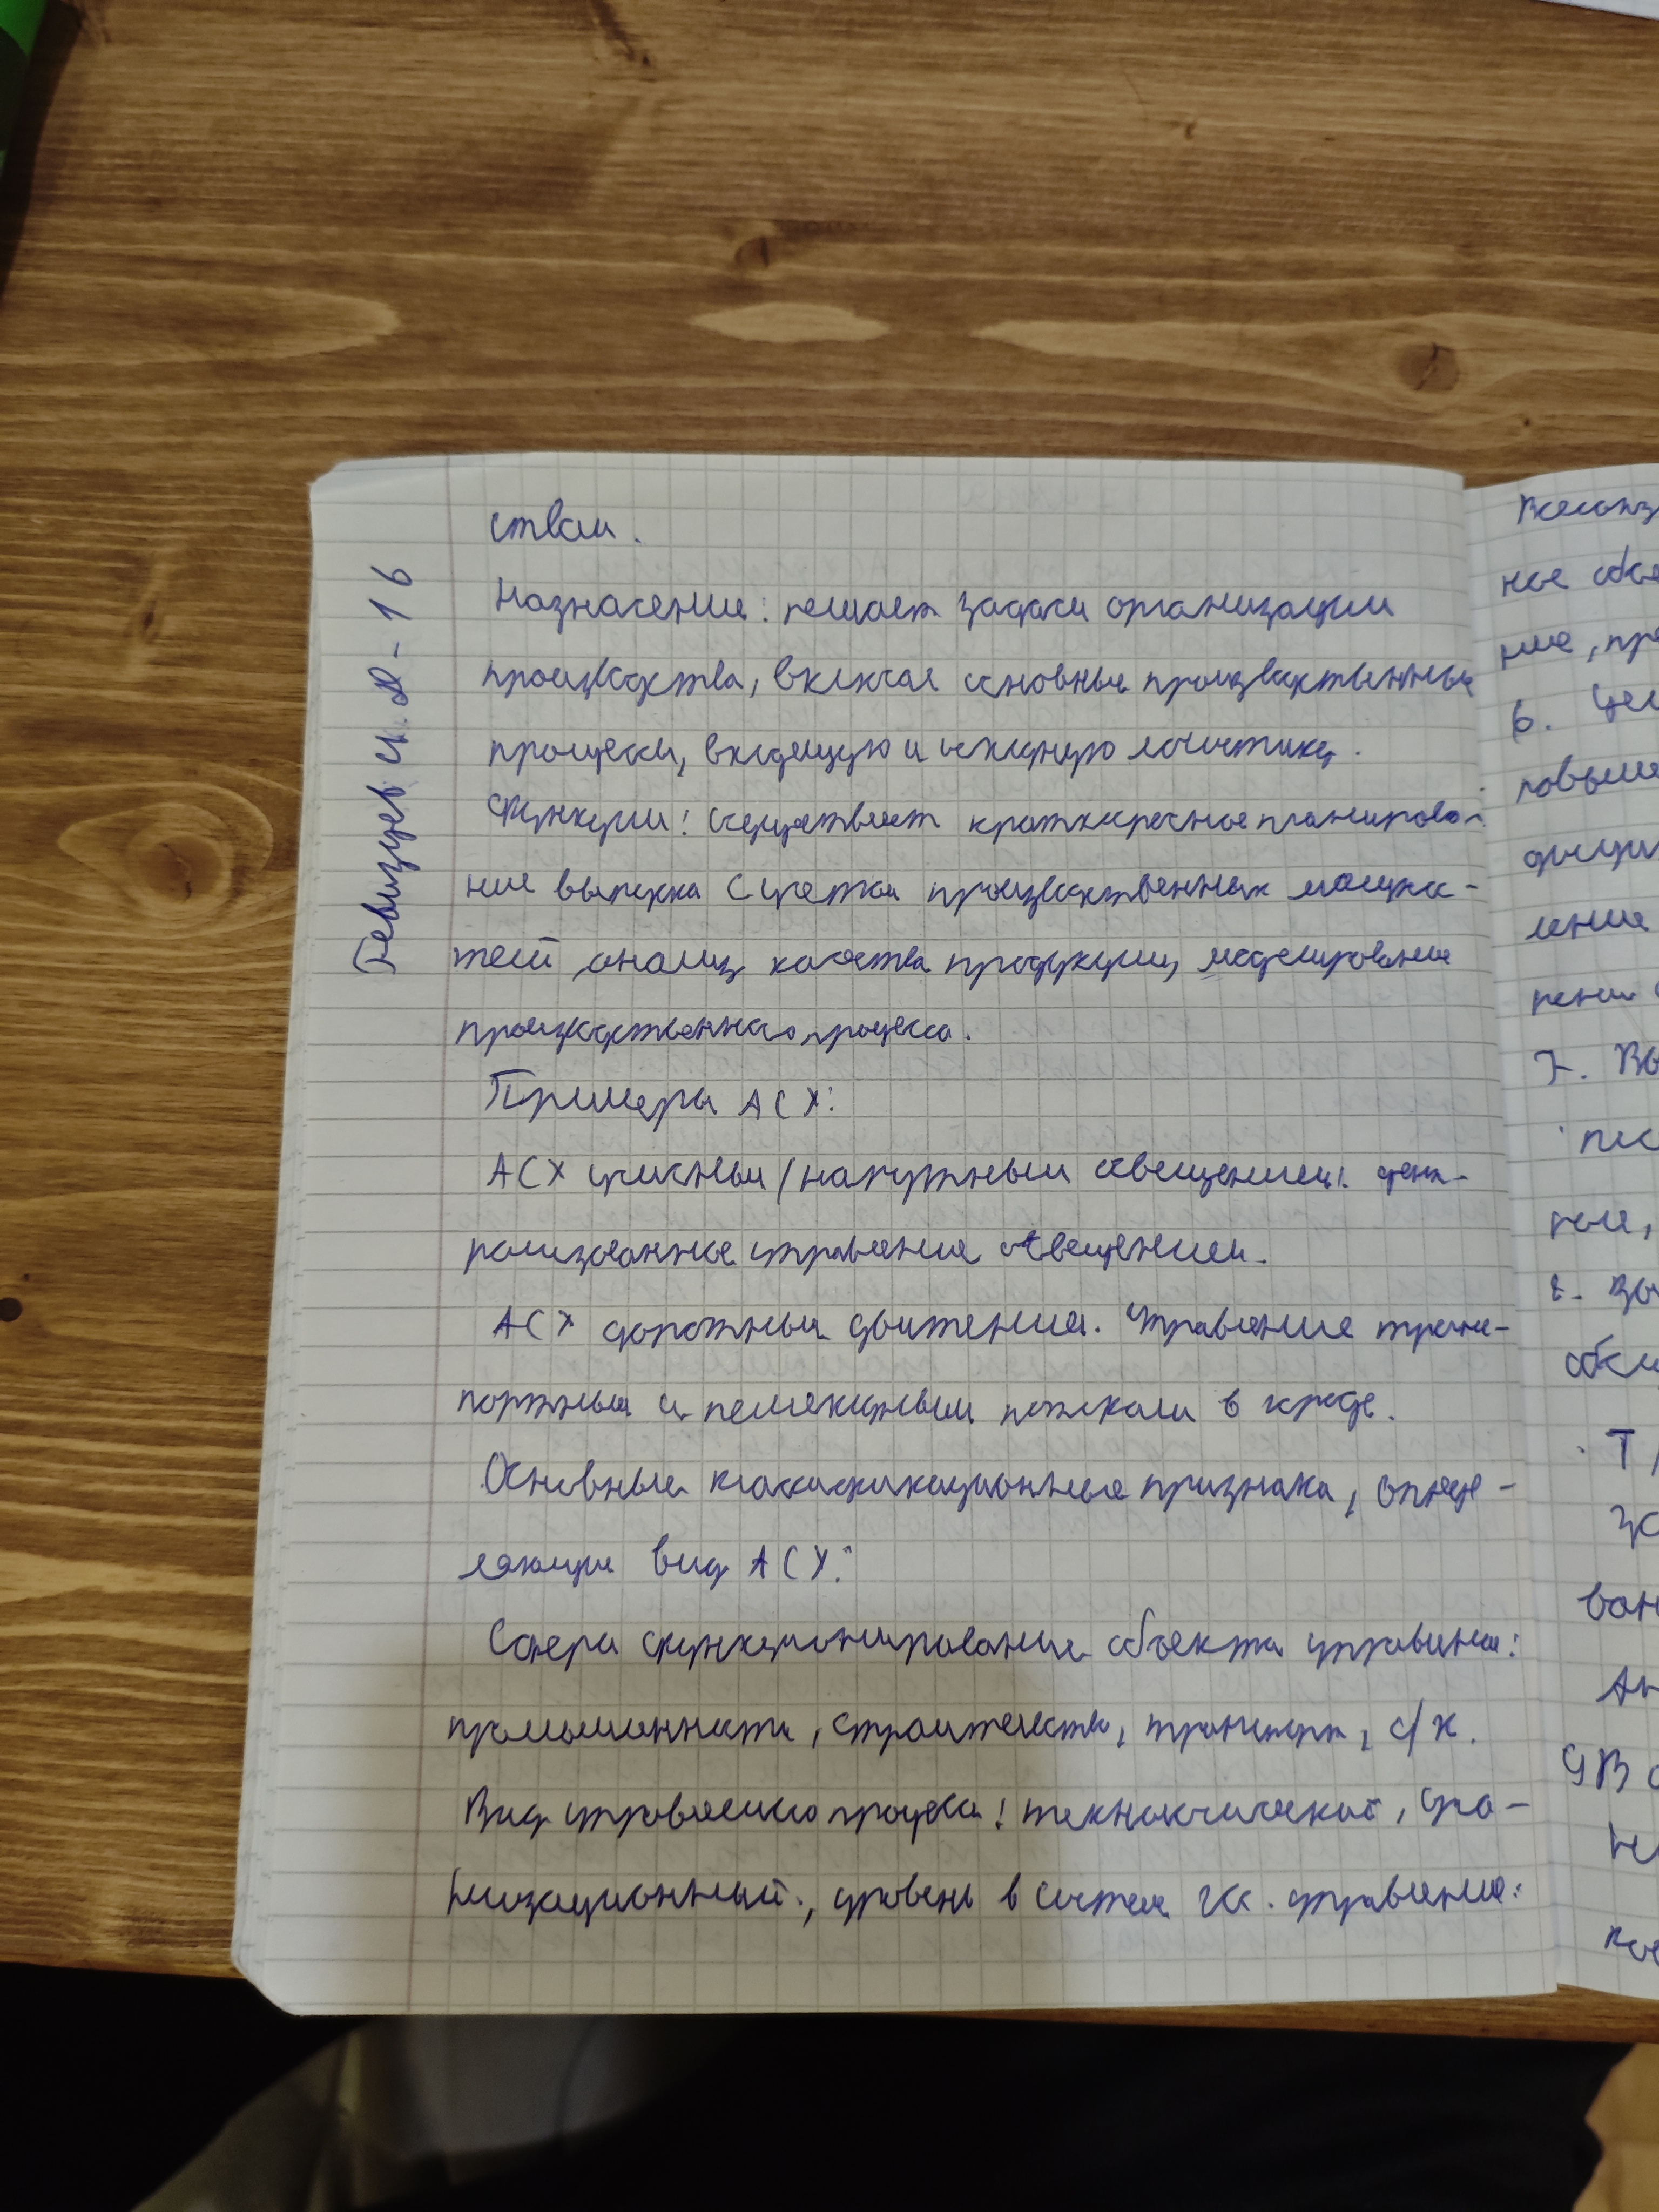 ством.
Назначение: решает задачи организации
производства, включая основные производственные
процессы, входящую и исходную логистику.
Функции: осуществляет краткосрочное планирова-
ние выпуска с учетом производственных мощно-
стей анализ качества продукции, моделирование
производственного процесса.
Примеры АСУ:
АСУ уличным/наружным освещением:
управление освещением.
АСУ дорожным движением. Управление транс-
портными и пешеходными потоками в городе.
Основные классификационные признака, опреде-
ляющие вид АСУ:
Сфера функционирования объекта управления:
промышленность, строительство, транспорт, с/х.
Вид управляемого процесса: технологический, орга-
низационный, уровень в системе гос. управления:
16
ное
ние, пре
6. Цел
повыше
ление
7. Вы
вон